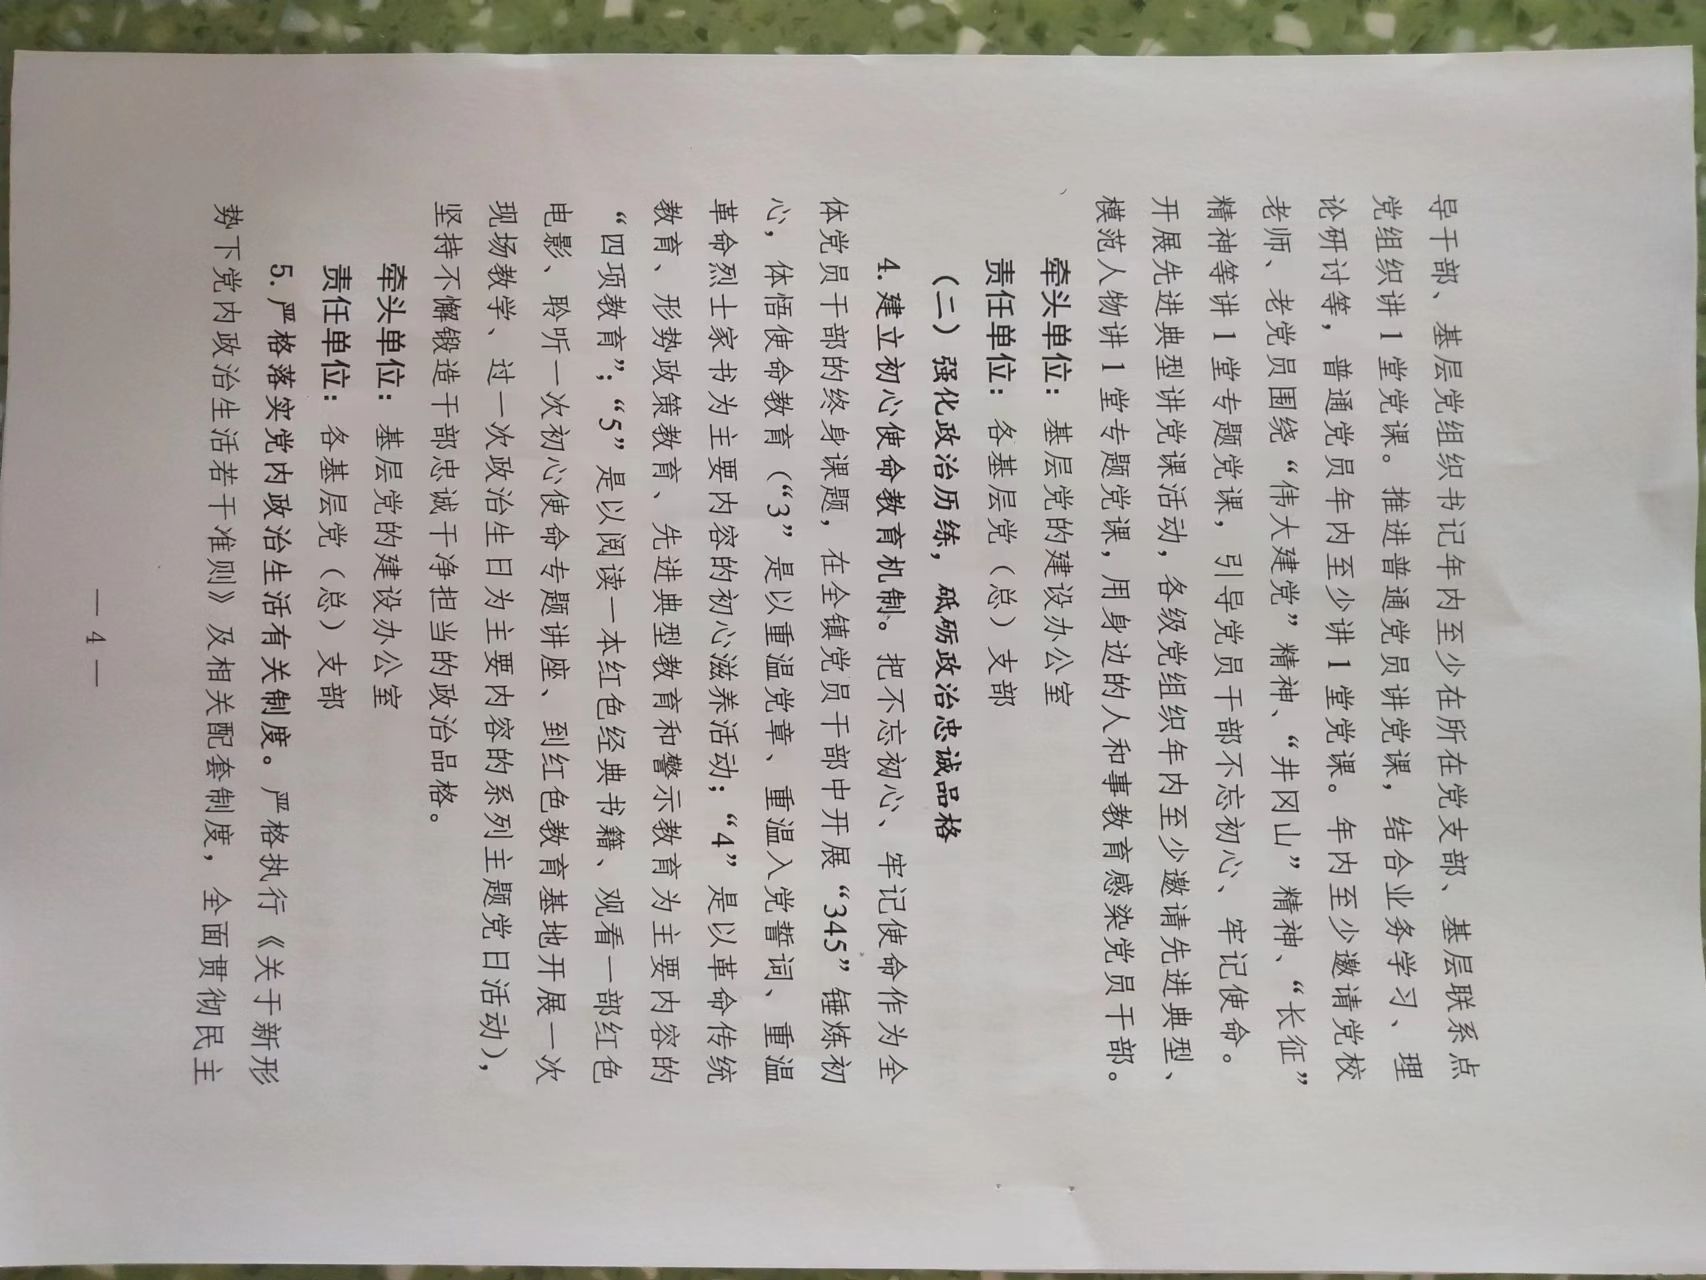 导干部、基层党组织书记年内至少在所在党支部、基层联系点
党组织讲1堂党课。推进普通党员讲党课，结合业务学习、理
论研讨等，普通党员年内至少讲1堂党课。年内至少邀请党校
老师、老党员围绕“伟大建党”精神、“井冈山”精神、“长征”
精神等讲1堂专题党课，引导党员干部不忘初心、牢记使命。
开展先进典型讲党课活动，各级党组织年内至少邀请先进典型、
模范人物讲1堂专题党课，用身边的人和事教育感染党员干部。
牵头单位：基层党的建设办公室
责任单位：各基层党（总）支部
（二）强化政治历练，砥砺政治忠诚品格
4.建立初心使命教育机制。把不忘初心、牢记使命作为全
体党员干部的终身课题，在全镇党员干部中开展“345”锤炼初
心，体悟使命教育（“3”是以重温党章、重温入党誓词、重温
革命烈士家书为主要内容的初心滋养活动；“4”是以革命传统
教育、形势政策教育、先进典型教育和警示教育为主要内容的
“四项教育”；“5”是以阅读一本红色经典书籍、观看一部红色
电影、聆听一次初心使命专题讲座、到红色教育基地开展一次
现场教学、过一次政治生日为主要内容的系列主题党日活动），
坚持不懈锻造干部忠诚干净担当的政治品格。
牵头单位：基层党的建设办公室
责任单位：各基层党（总）支部
5.严格落实党内政治生活有关制度。严格执行《关于新形
势下党内政治生活若干准则》及相关配套制度，全面贯彻民主
— 4 —